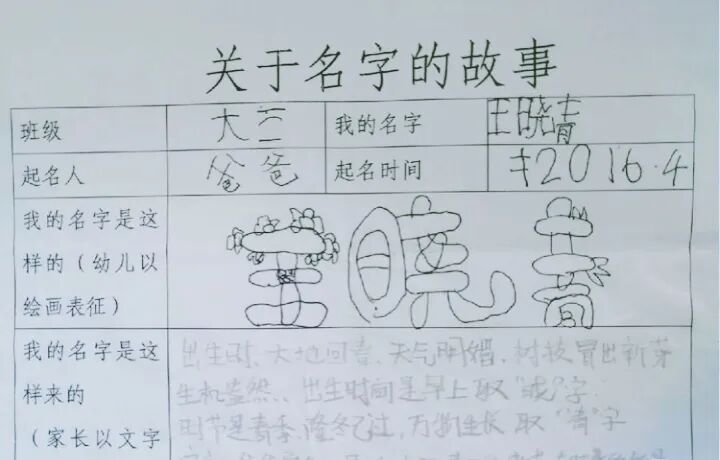 关于名字的故事
班级 大三 我的名字 王晓青
起名人 爸爸 起名时间 2016.4
我的名字是这
样的（幼儿以
绘画表征）
王晓青
我的名字是这
样来的
（家长以文字
出生时、大地回春、天气明媚、树枝冒出新芽
生机盎然、出生时间是早上取"晓"字
时节是春季、隆冬已过、万物生长 取"青"字